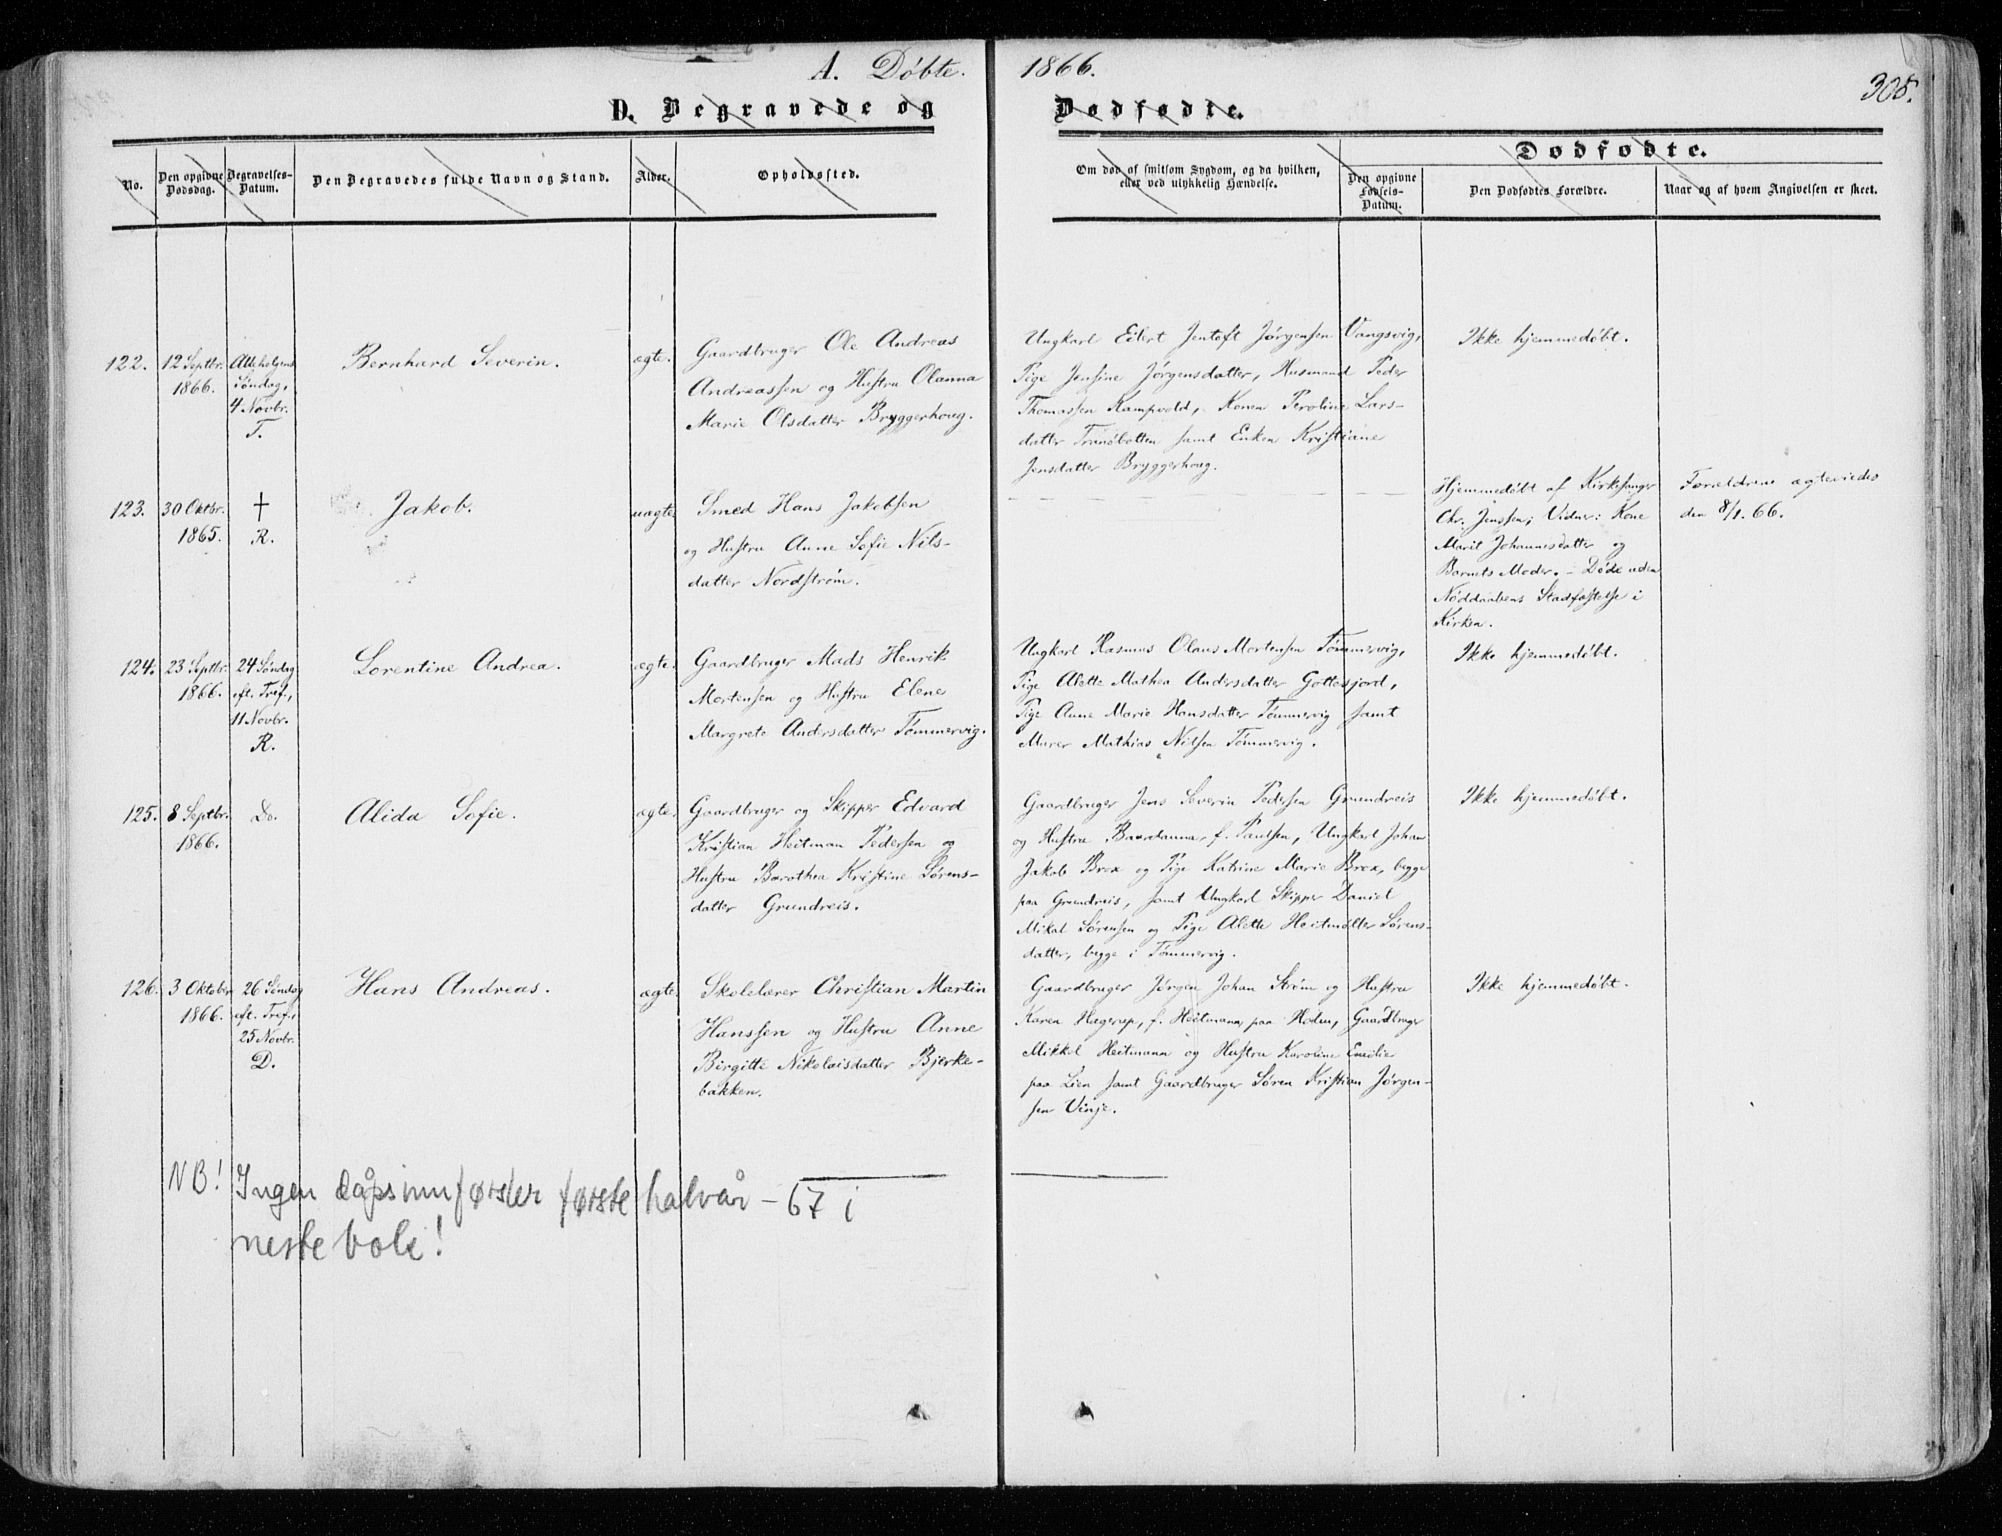 A. Døbte. 1866.
308.
D. Begravede og Dødfødte.
Dødfødte.
No.
Den opgivne Dødsdag.
Begravelses-Datum.
Den Begravedes fulde Navn og Stand.
Alder.
Opholdssted.
Om død af smitsom Sygdom, og da hvilken, eller ved ulykkelig Hændelse.
Den opgivne Fødsels-Datum.
Den Dødfødtes Forældre.
Naar og af hvem Angivelsen er skeet.
122.
12 Septbr.
1866.
Allehelgens
Søndag,
4 Novbr.
T.
Bernhard Severin.
ægte.
Gaardbruger Ole Andreas
Andreassen og Hustru Olanna
Marie Olsdatter Bryggerhoug.
Ungkarl Edert Jentoft Jørgensen Vangsvig,
Pige Jensine Jørgensdatter, Husmand Peder
Thomassen Kampvold, Konen Peroline Lars-
datter Tranøbotten samt Enken Kristiane
Jensdatter Bryggerhoug.
Ikke hjemmedøbt.
123.
30 Oktbr.
1865.
†
R.
Jakob.
uægte.
Smed Hans Jakobsen
og Hustru Anne Sofie Nils-
datter Nordstrøm.
Hjemmedøbt af Kirkesanger
Chr. Jenssen; Vidner: Kone
Marit Johannesdatter og
Barnets Moder. – Døde uden
Nøddaabens Stadfæstelse i
Kirken.
Forældrene ægteviedes
den 8/1. 66.
124.
23 Septbr.
1866.
24 Søndag
eft. Tref.,
11 Novbr.
R.
Lorentine Andrea.
ægte.
Gaardbruger Mads Henrik
Mortensen og Hustru Elene
Margrete Andersdatter Tømmervig.
Ungkarl Rasmus Olaus Mortensen Tømmervig,
Pige Alette Mathea Andersdatter Gottesjord,
Pige Anne Marie Hansdatter Tømmervig samt
Murer Mathias Nilsen Tømmervig.
Ikke hjemmedøbt.
125.
8 Septbr.
1866.
Do.
Alida Sofie.
ægte.
Gaardbruger og Skipper Edvard
Kristian Heitman Pedersen og
Hustru Barothea Kristine Sørens-
datter Grundreis.
Gaardbruger Jens Severin Pedersen Grundreis
og Hustru Baardanna, f. Paulsen, Ungkarl Johan
Jakob Brox og Pige Katrine Marie Brox, begge
paa Grundreis, samt Ungkarl Skipper Daniel
Mikal Sørensen og Pige Alette Heitmølter Sørens-
datter, begge i Tømmervig.
Ikke hjemmedøbt.
126.
3 Oktober
1866.
26 Søndag
eft. Tref.,
25 Novbr.
D.
Hans Andreas.
ægte.
Skolelærer Christian Martin
Hanssen og Hustru Anne
Birgitte Nikolaisdatter Bjerke-
bakken.
Gaardbruger Jørgen Johan Strøm og Hustru
Karen Hagerup, f. Heitmann, paa Hoden, Gaardbruger
Mikkel Heitmann og Hustru Karoline Emilie
paa Lien samt Gaardbruger Søren Kristian Jørgen-
sen Vinje.
Ikke hjemmedøbt.
NB! Ingen dåpsinnførsler første halvår – 67 i
neste bok!